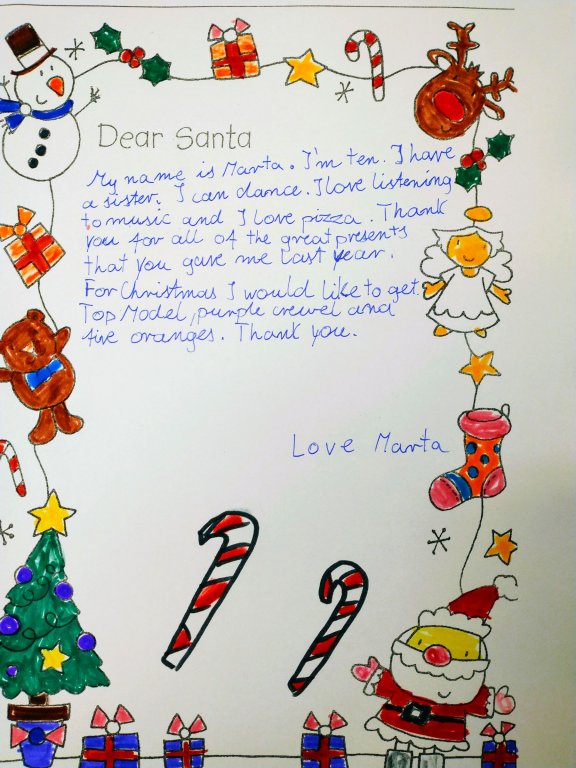 Dear Santa
My name is Marta. I'm ten. I have
a sister. I can dance. I love listening
to music and I love pizza. Thank
you for all of the great presents
that you gave me last year.
For Christmas I would like to get
Top Model, purple crewel and
five oranges. Thank you.
Love Marta